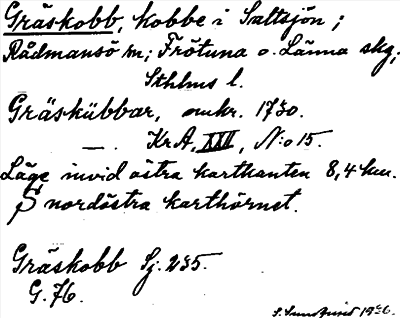 Gräskobb, kobbe i Saltsjön;
Rådmansö sn; Frötuna o. Länna skg;
Sthlms l.
Gräskübbar, omkr. 1730.
—. KrA, XXII, N:o 15.
Läge invid östra kartkanten 8,4 km.
S nordöstra karthörnet.
Gräskobb Sj. 235.
G. 76.